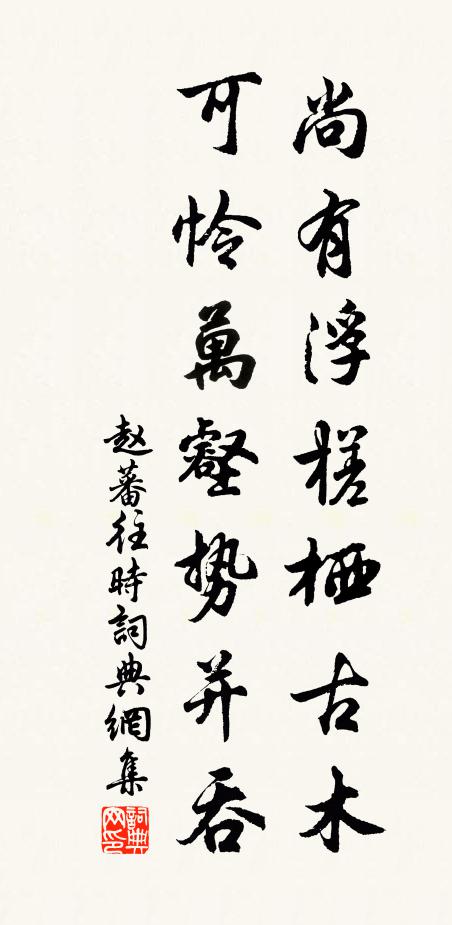 尚有浮槎栖古木
可怜萬壑勢并吞
赵蕃往時詞典網集
詞典网印